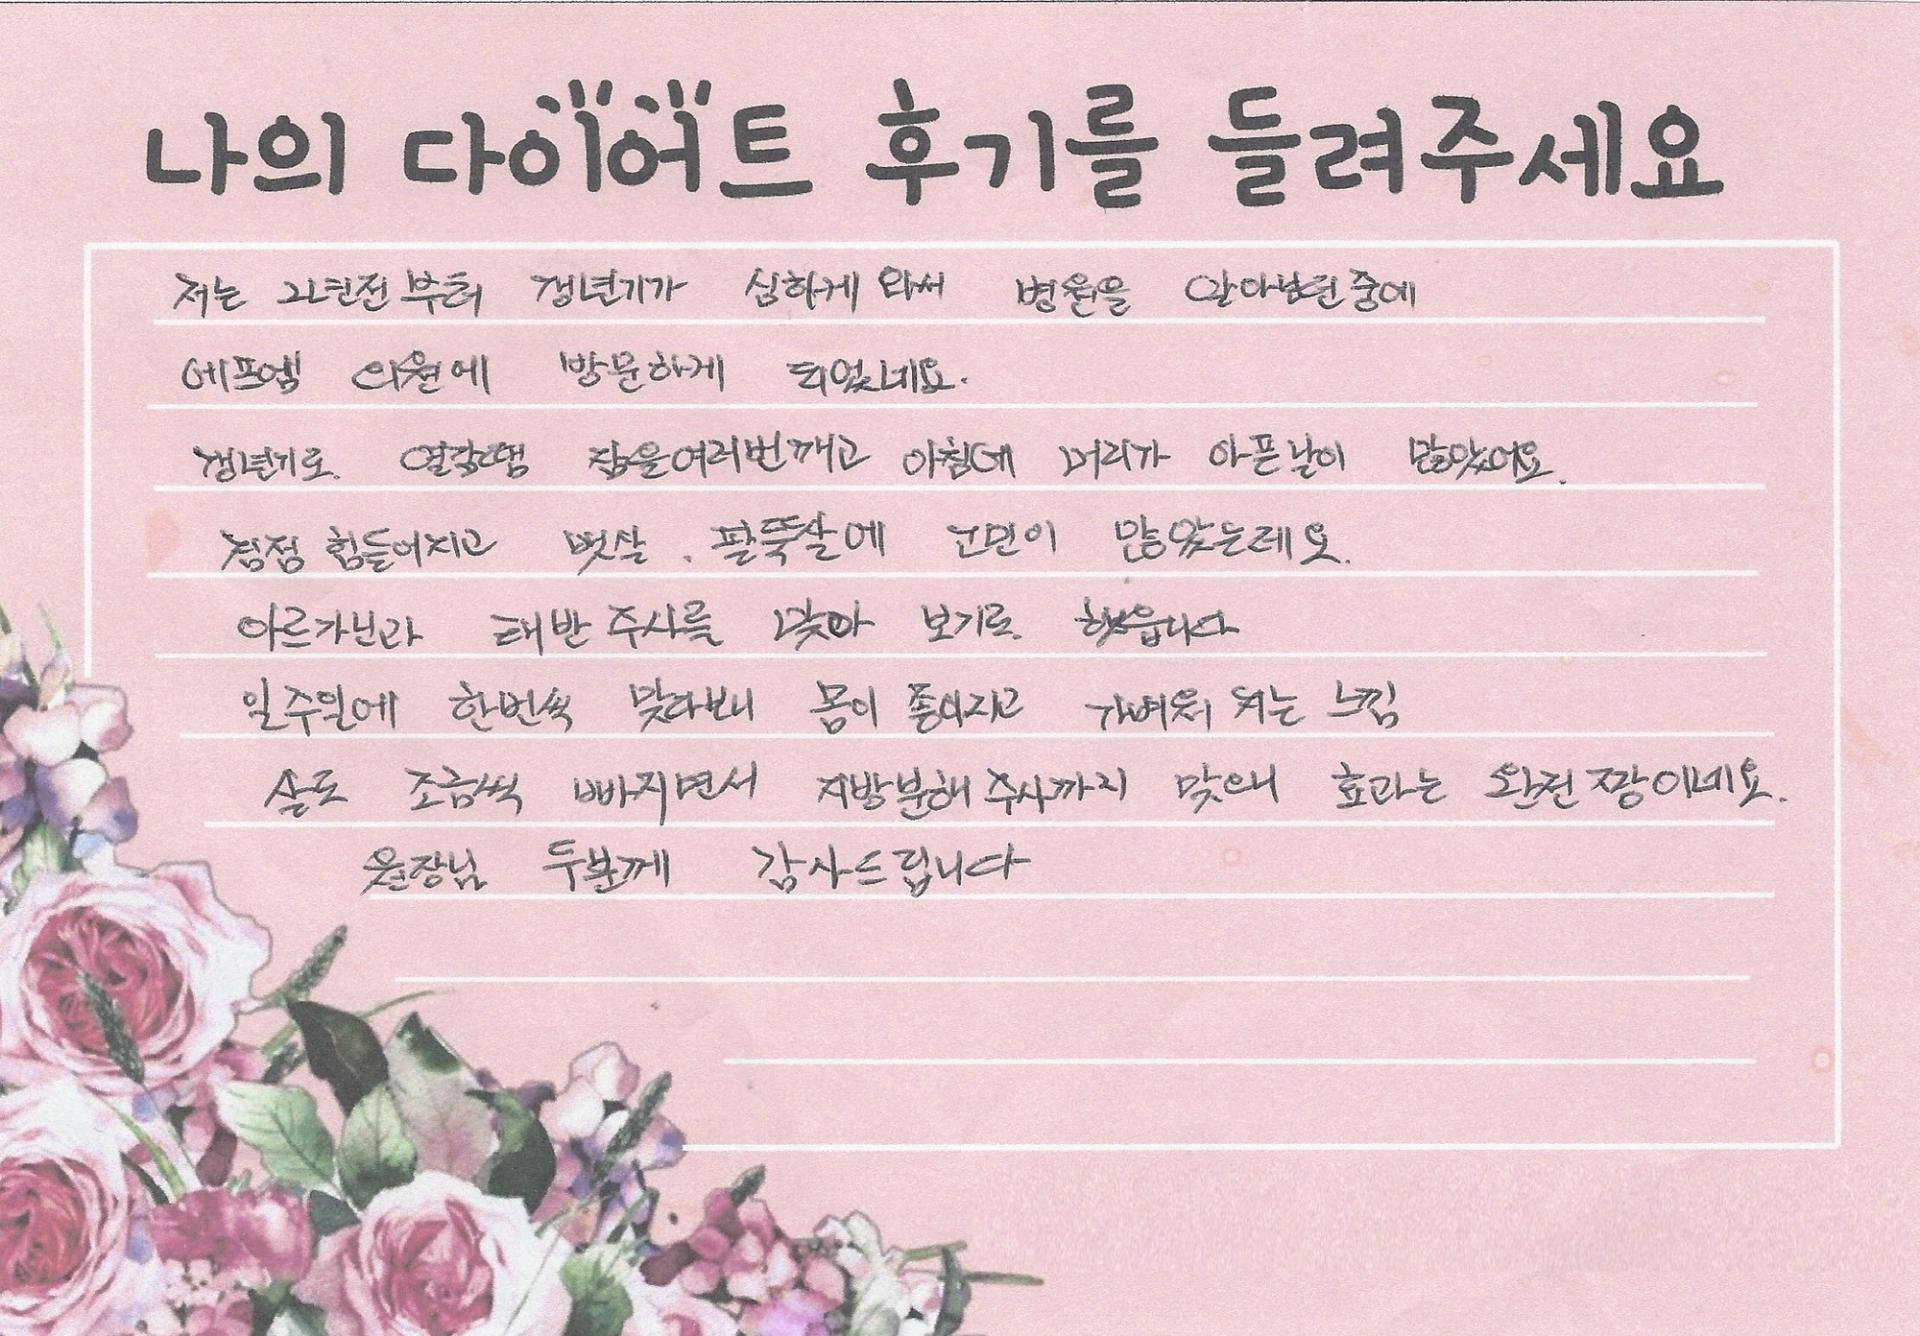 나의 다이어트 후기를 들려주세요
저는 2년전부터 갱년기가 심하게 와서 병원을 알아보던중에
에프엠 의원에 방문하게 되었네요.
갱년기로 열감땜 잠을여러번깨고 아침에 머리가 아픈날이 많았어요.
점점 힘들어지고 뱃살. 팔뚝살에 고민이 많았는데요.
아르기닌과 태반주사를 맞아 보기로 했읍니다
일주일에 한번씩 맞다보니 몸이 좋아지고 가벼워 지는 느낌
살도 조금씩 빠지면서 지방분해주사까지 맞으니 효과는 완전짱이네요.
원장님 두분께 감사드립니다